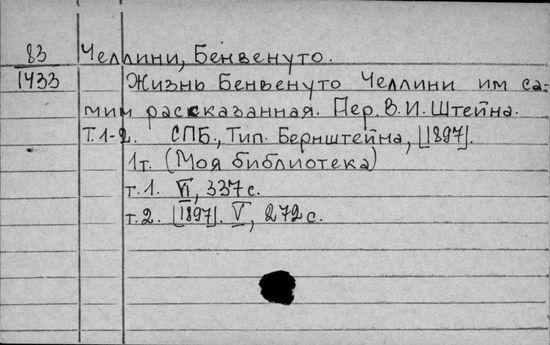 83 Челлини, Бенвенуто.
1433 Жизнь Бенвенуто Челлини им са-
мим рассказанная. Пер. В. И. Штейна.
Т. 1-2. СПБ., Тип. Бернштейна, [1897].
1т. (Моя библиотека)
т. 1. VI, 337 с.
т. 2. [1897]. V, 272 с.